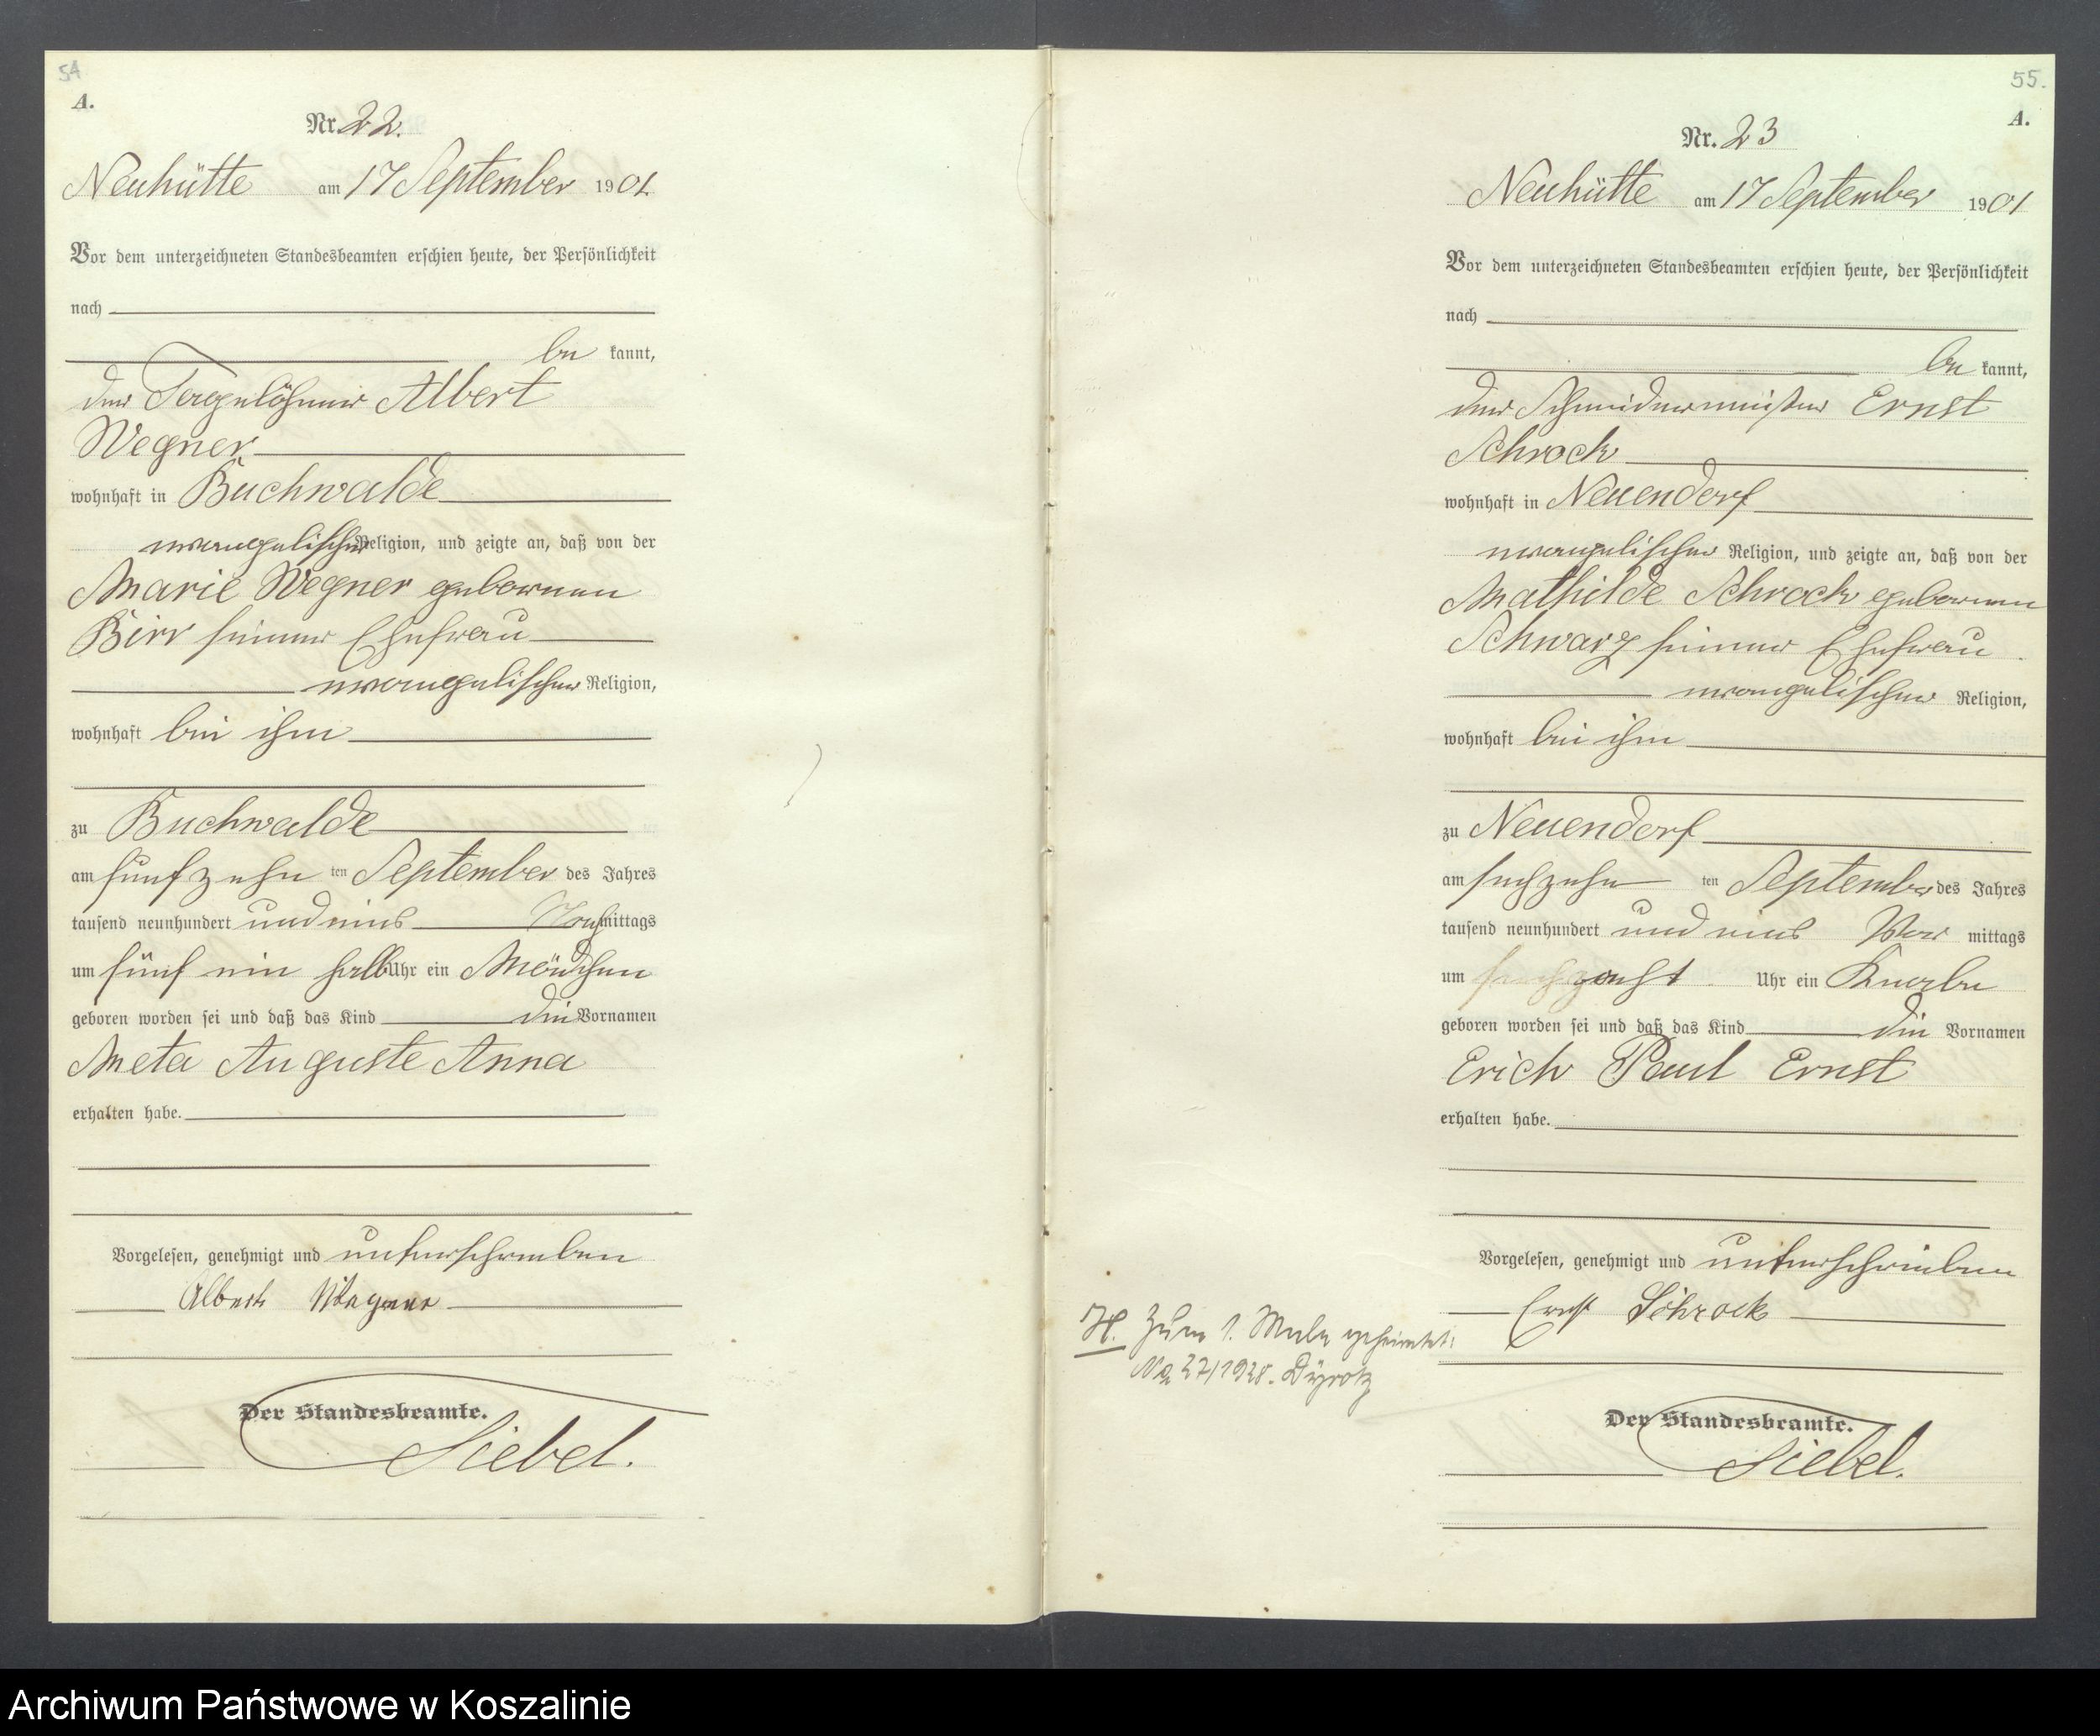 54
A.
Nr. 22.
Neuhütte am 17 September 1901.
Vor dem unterzeichneten Standesbeamten erschien heute, der Persönlichkeit
nach
be kannt,
der Tagelöhner Albert
Wegner
wohnhaft in Buchwalde
evangelischer Religion, und zeigte an, daß von der
Marie Wegner geborenen
Birr seiner Ehefrau
evangelischer Religion,
wohnhaft bei ihm
zu Buchwalde
am fünfzehn ten September des Jahres
tausend neunhundert und eins Nachmittags
um fünf ein halb Uhr ein Mädchen
geboren worden sei und daß das Kind die Vornamen
Meta Auguste Anna
erhalten habe.
Vorgelesen, genehmigt und unterschrieben
Albert
Der Standesbeamte.
Siebel.
55.
A.
Nr. 23
Neuhütte am 17 September 1901
Vor dem unterzeichneten Standesbeamten erschien heute, der Persönlichkeit
nach
be kannt,
der Schneidermeister Ernst
Schrock
wohnhaft in Neuendorf
evangelischer Religion, und zeigte an, daß von der
Mathilde Schrock geborenen
Schwarz seiner Ehefrau
evangelischer Religion,
wohnhaft bei ihm
zu Neuendorf
am sechzehn ten September des Jahres
tausend neunhundert und eins Vor mittags
um acht Uhr ein Knabe
geboren worden sei und daß das Kind die Vornamen
Erich Paul Ernst
erhalten habe.
Vorgelesen, genehmigt und unterschrieben
Ernst Schrock
H. Zum 1. Male geheiratet:
27/1928. Dyrotz
Der Standesbeamte.
Siebel.
Archiwum Państwowe w Koszalinie